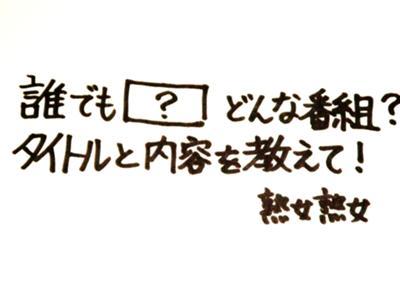 誰でも ? どんな番組?
タイトルと内容を教えて!
熟女熟女